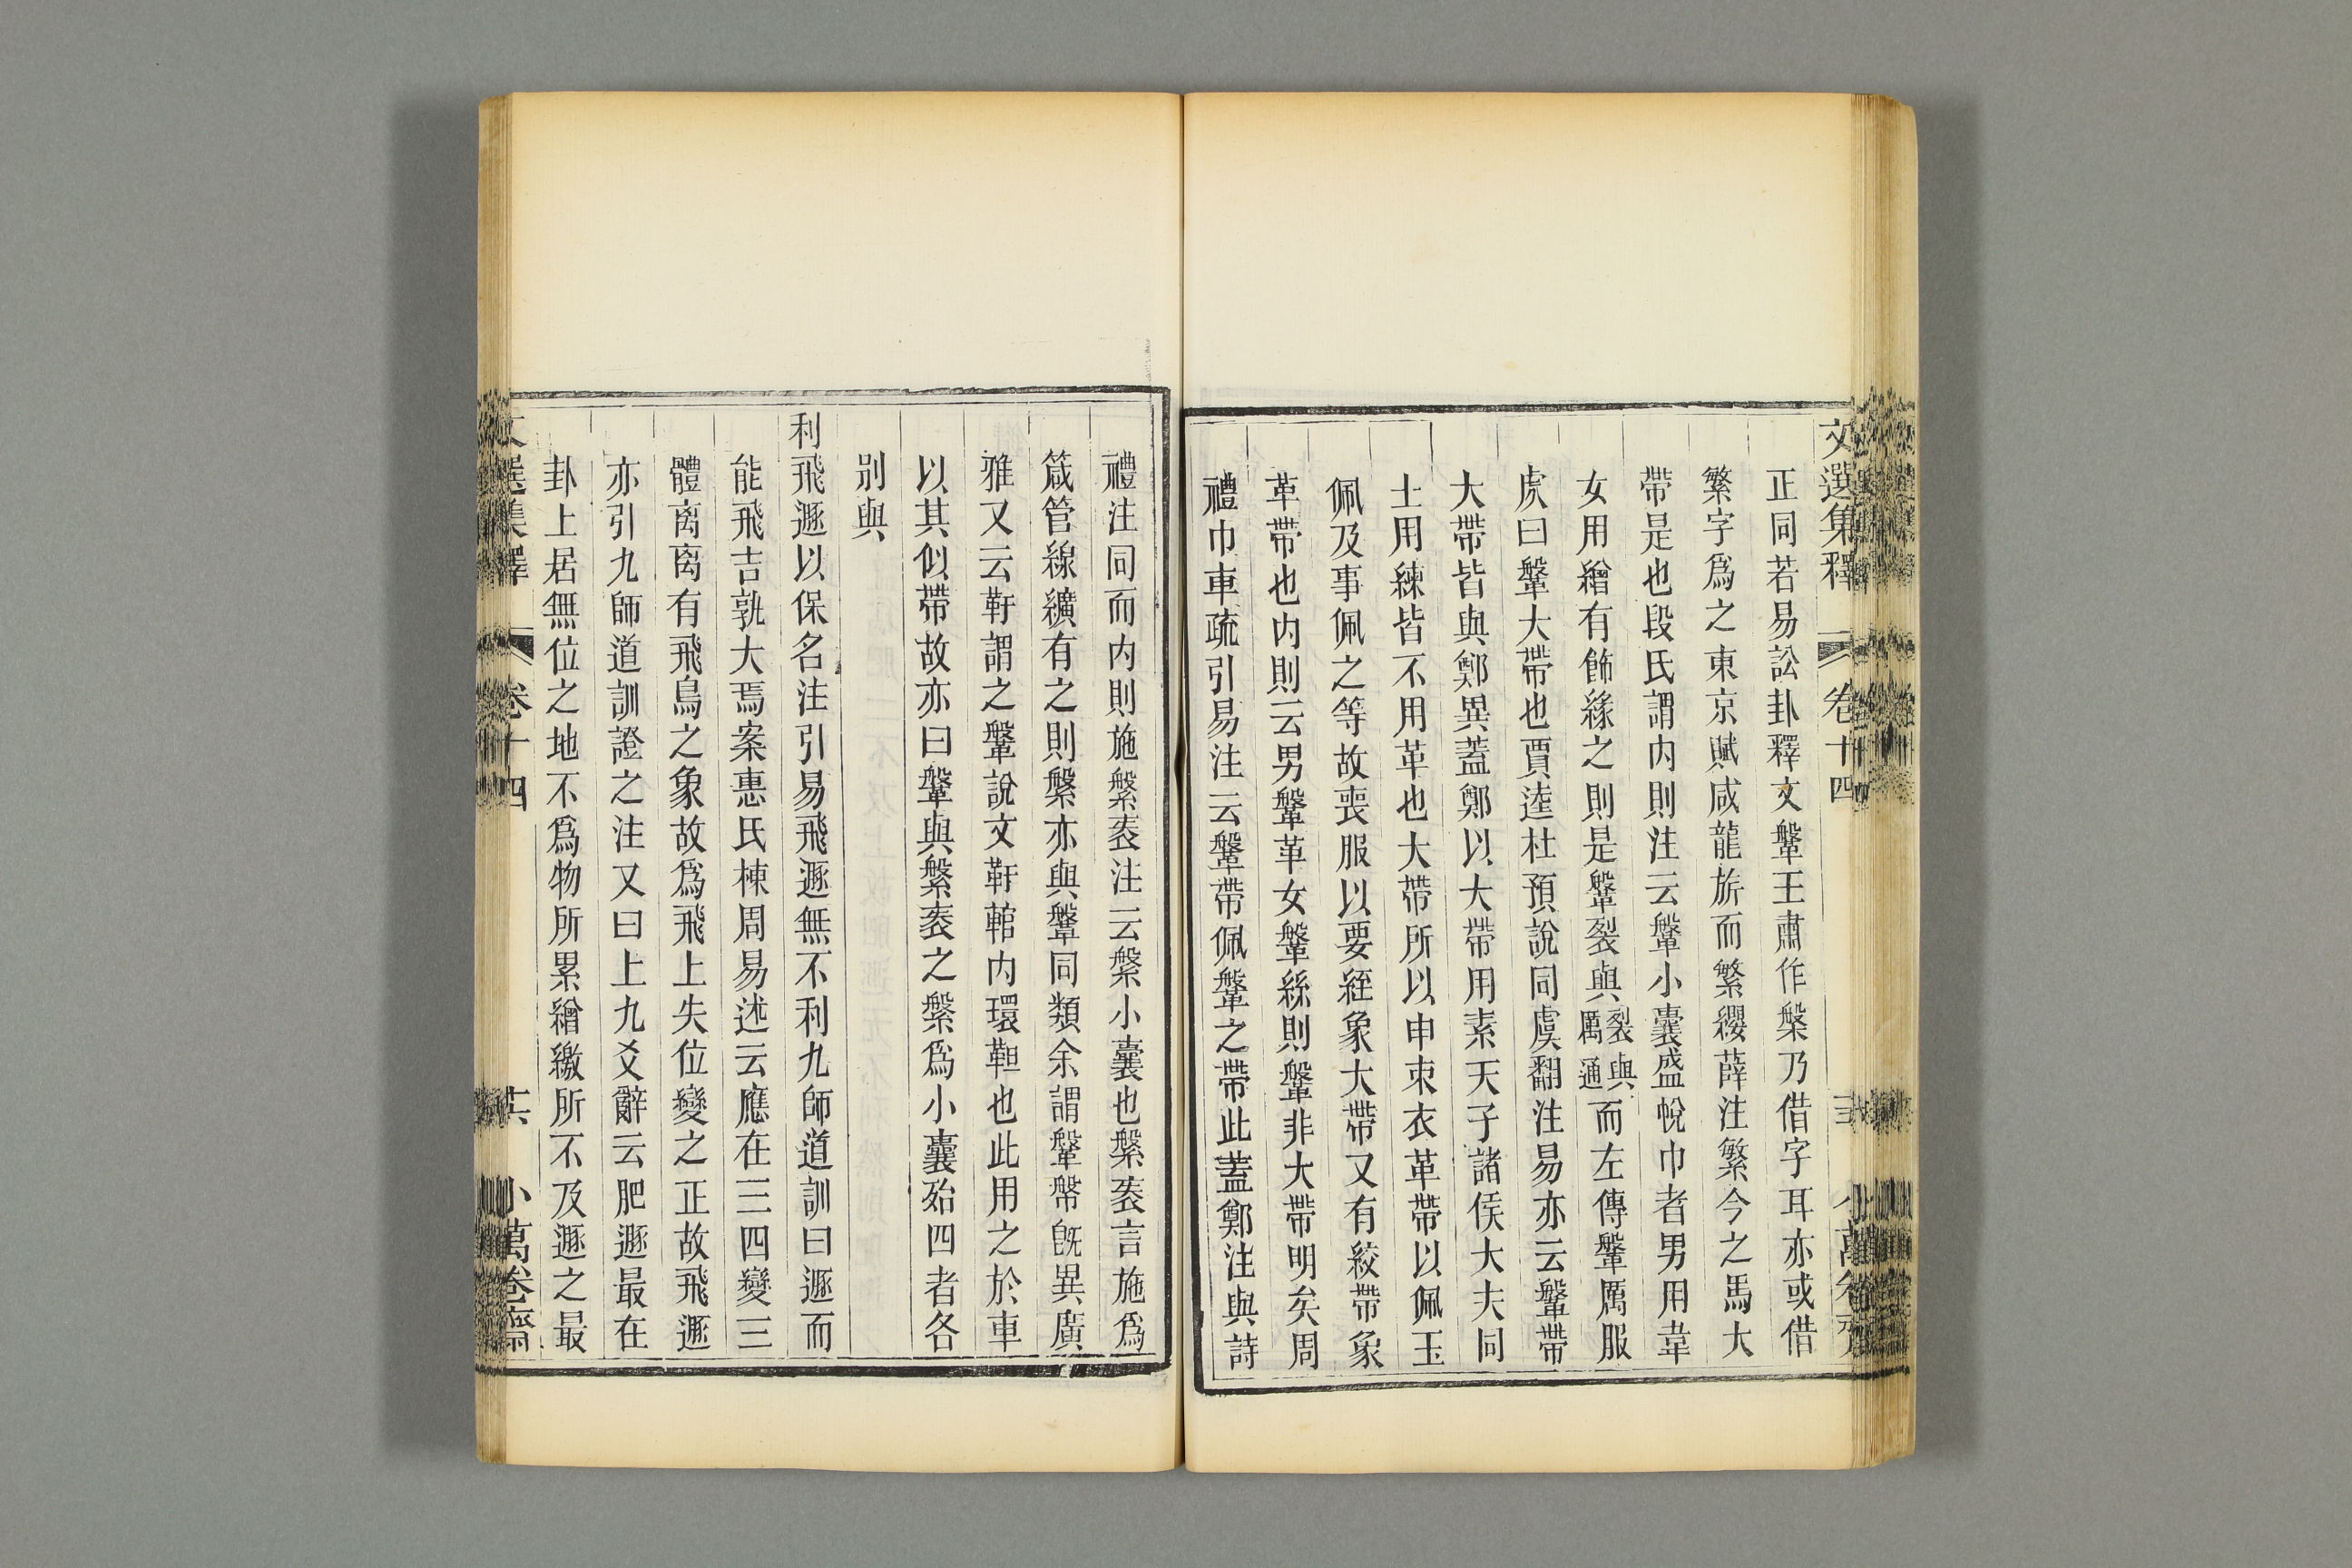 文選集釋 卷十四
正同若易訟卦釋文鞶王肅作槃乃借字耳亦或借
繁字爲之東京賦咸龍旂而繁纓薛注繁今之馬大
帶是也段氏謂内則注云鞶小囊盛帨巾者男用韋
女用繒有飾緣之則是鞶裂與裂與厲通而左傳鞶厲服
虔曰鞶大帶也賈逵杜預說同虞翻注易亦云鞶帶
大帶皆與鄭異蓋鄭以大帶用素天子諸侯大夫同
士用練皆不用革也大帶所以申束衣革帶以佩玉
佩及事佩之等故喪服以要絰象大帶又有絞帶象
革帶也内則云男鞶革女鞶絲則鞶非大帶明矣周
禮巾車疏引易注云鞶帶佩鞶之帶此蓋鄭注與詩
禮注同而内則施縏袠注云縏小囊也縏袠言施爲
箴管線纊有之則縏亦與鞶同類余謂鞶幣既異廣
雅又云靬謂之鞶說文靬輨内環靼也此用之於車
以其似帶故亦曰鞶與縏袠之縏爲小囊殆四者各
別與
利飛遯以保名注引易飛遯無不利九師道訓曰遯而
能飛吉孰大焉案惠氏棟周易述云應在三四變三
體离离有飛鳥之象故爲飛上失位變之正故飛遯
亦引九師道訓證之注又曰上九爻辭云肥遯最在
卦上居無位之地不爲物所累繒繳所不及遯之最
選集釋 卷十四 小萬卷齋